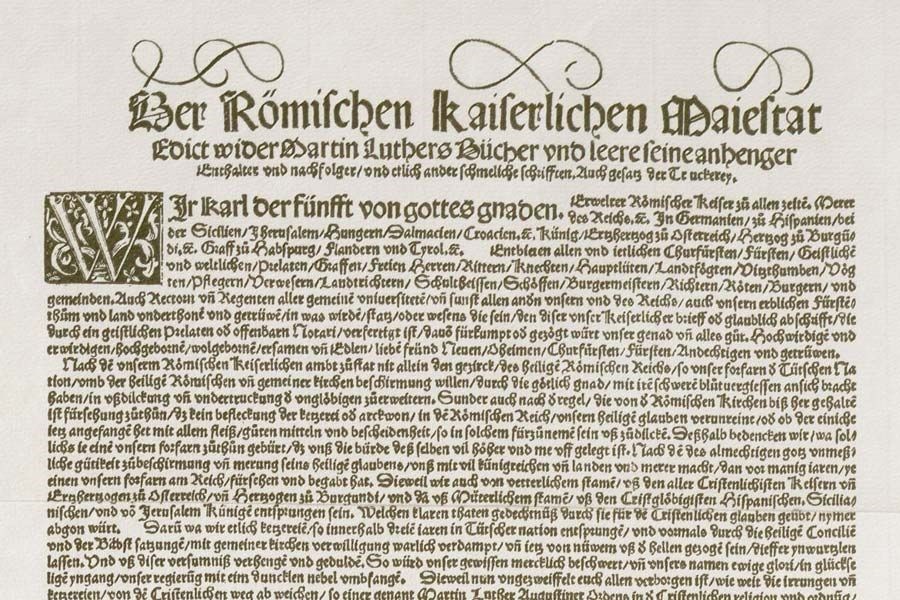 Der Römischen Kaiserlichen Maiestat
Edict wider Martin Luthers Bücher vnd leere seine anhenger
Enthalter vnd nachfolger/vnd etlich ander schmeliche schrifften. Auch gesatz der Truckerey.
WJr Karl der fünfft von gottes gnaden. Erwelter Römischer Keiser zů allen zeitē. Merer
des Reichs.ꝛc. Jn Germanien/zů Hispanien/bei
der Sicilien/Jherusalem/Hungern/Dalmacien/Croacien.ꝛc. Künig/Ertzhertzog zů Osterreich/Hertzog zů Burgū
di.ꝛc. Graff zů Habspurg/Flandern vnd Tyrol.ꝛc. Entbieten allen vnd ietlichen Churfürsten/Fürsten/Geistlichē
vnd weltlichen/Prelaten/Graffen/Freien Herren/Rittern/Knechten/Hauptlüten/Landtfögten/Vitzthumben/Vög
ten/Pflegern/Verwesern/Landtrichtern/Schultheissen/Schöffen/Burgermeistern/Richtern/Röten/Burgern/vnd
gemeinden. Auch Rectorn vñ Regenten aller gemeinē vniuersitetē/vñ sunst allen andn vnsern vnd des Reichs/auch vnsern erblichen Fürstē
thům vnd land vnderthonē vnd getrüwē/in was wirdē/statz/oder wesens die sein/den diser vnser Keiserlicher brieff oď glaublich abschrifft/die
durch ein geistlichen Prelaten oď offenbarn Notari/verfertigt ist/dauō fürkumpt oď gezögt würt vnser genad vñ alles gůt. Hochwirdigē vnd
erwirdigen/hochgebornē/wolgebornē/ersamen vñ Edlen/liebē fründ Neuen/Oheimen/Churfürsten/Fürsten/Andechtigen vnd getrüwen.
Nach dē vnserm Römischen Keiserlichen ambt zůstat nit allein den gezirck/des heiligē Römischen Reichs/so vnser forfarn ď Tütschen Na
tion/vmb der heiligē Römischen vñ gemeiner kirchen beschirmung willen/durch die götlich gnad/mit irē schwerē blůtuergiessen an sich bracht
haben/in vßbildung vñ vndertruckung ď vnglöbigen zůerweitern. Sunder auch nach ď regel/die von ď Römischen Kirchen biß her gehaltē
ist fürsehung zůthůn/dz kein befleckung der ketzerei oď arckwon/in dē Römischen Reich/vnsern heiligē glauben verunreine/oď ob der einiche
ietz angefangē het mit allem fleiß/gůten mitteln vnd bescheidenheit/so in solchem fürzůnemē sein vß zůdilckē. Deßhalb bedencken wir/wa sol
lichs ie einē vnsern forfarn zůthůn gebürt/dz vnß die bürde deß selben vil höher vnd me vff gelegt ist. Nach dē des almechtigen gotz vnmeß
liche gütikeit zůbeschirmung vñ merung seins heiligē glaubens/vnß mit vil künigreichen vñ landen vnd merer macht/dan vor manig iaren/ye
einen vnsern forfarn am Reich/fürsehen vnd begabt hat. Dieweil wir auch von vetterlichem stamē/vß den aller Cristenlichisten Keisern vñ
Ertzhertzogen zů Osterreich/vñ Hertzogen zů Burgundi/vnd dā vß Mütterlichem stamē/vß den Cristglöbigisten Hispanischen. Sicilia
nischen/vnd vō Jerusalem Künigē entsprungen sein. Welchen klaren thaten gedechtnüß durch sie für dē Cristenlichen glauben geübt/nymer
abgon würt. Darū wa wir etlich ketzereiē/so innerhalb dreiē iaren in Tütscher nation entsprungē/vnd vormals durch die heiligē Concilië
vnd der Bäbst satzungē/mit gemeiner kirchen verwilligung warlich verdampt/vñ ietz von nüwem vß ď hellen gezogē sein/dieffer ynwurtzlen
lassen. Vnd vß diser versumniß verhengē vnd geduldē. So würd vnser gewissen mercklich beschwert/vñ vnsers namen ewige glori/in glückse
ligē yngang/vnser regierūg mit eim duncklen nebel vmbfangē. Dieweil nun vngezweiffelt euch allen verborgen ist/wie weit die irrungen vñ
ketzereien/von dē Cristenlichen weg ab weichen/so einer genant Martin Luther Augustiner Ordens in ď Cristenlichen religion vnd ordnūg/